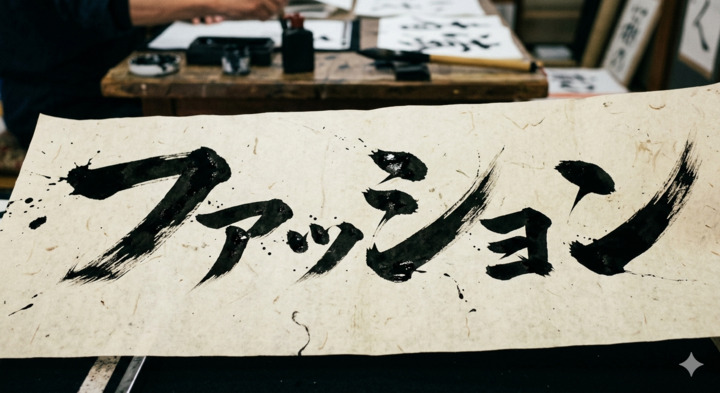 ファッション